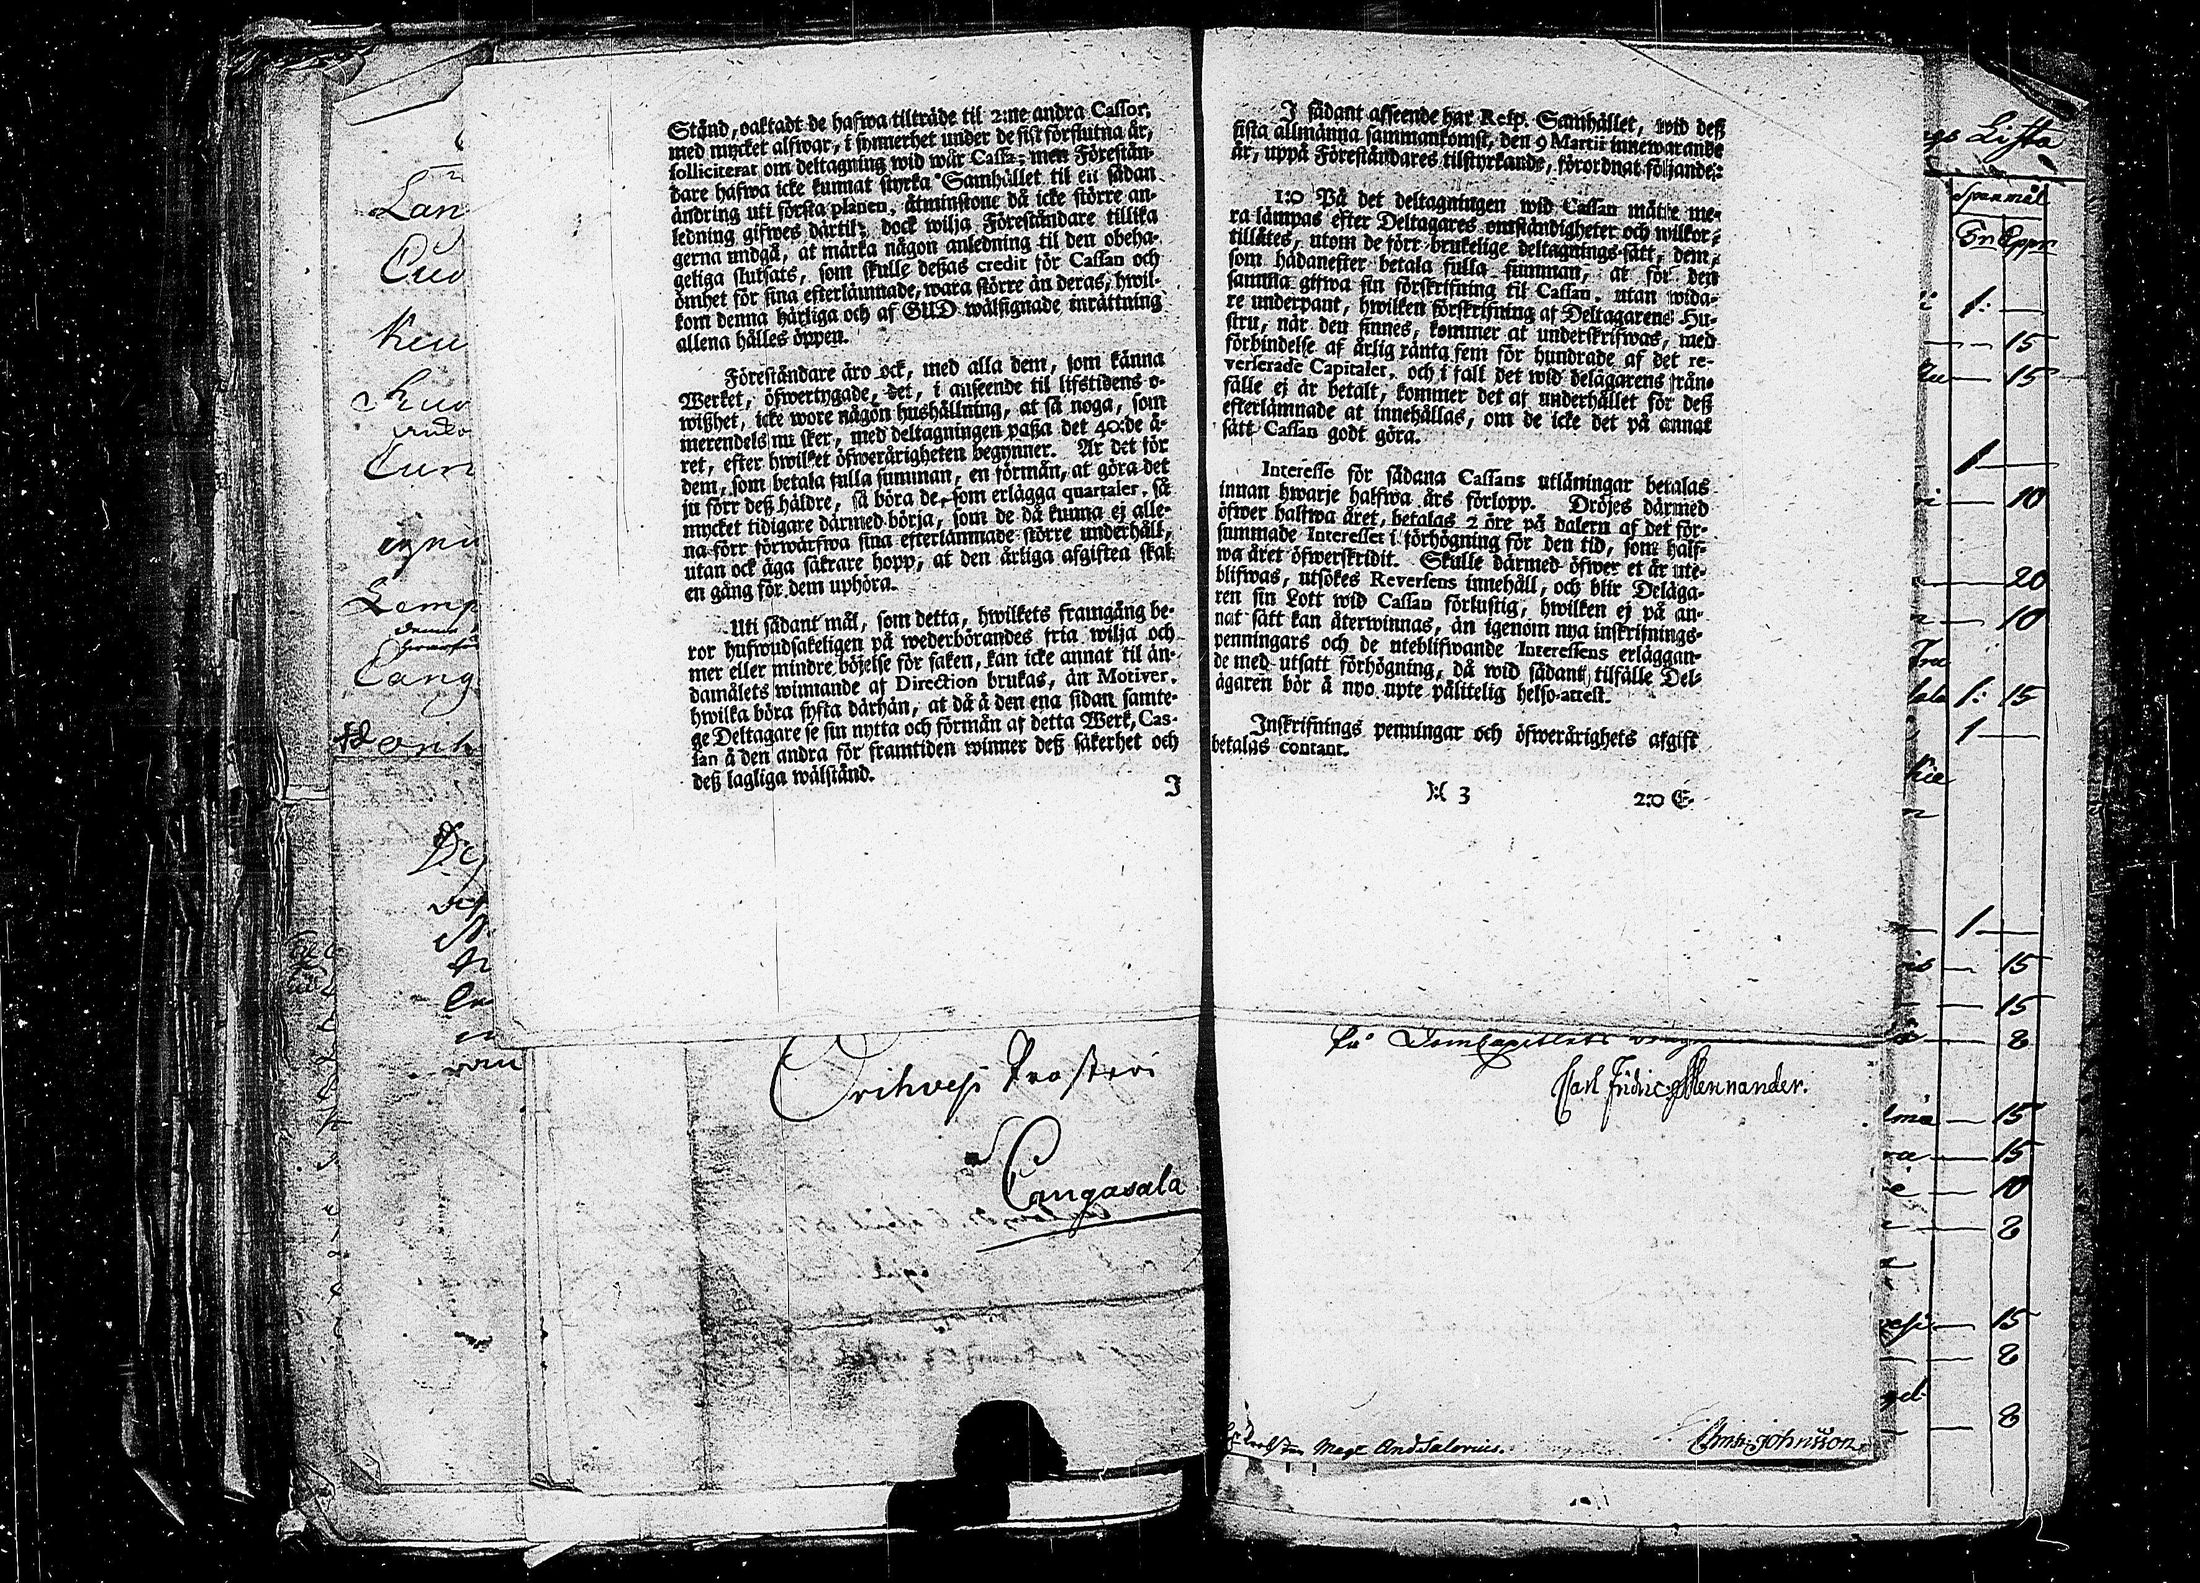 Stånd, oaktadt de hafwa tilträde til 2:ne andra Cassor,
med mycket alfwar, i synnerhet under de sist förflutna år,
solliciterat om deltagning wid wår Cassa; men Förestån-
dare hafwa icke kunnat styrka Samhället til en sådan
ändring uti första planen, åtminstone då icke större an-
ledning gifwes därtil; dock wilja Föreståndare tillika
gerna undgå, at märka någon anledning til den obeha-
geliga slutsats, som skulle deßas credit för Cassan och
ömhet för sina efterlämnade, wara större än deras, hwil-
kom denna härliga och af GUD wälsignade inrättning
allena hålles öppen.
Föreståndare äro ock, med alla dem, som känna
Werket, öfwertygade, det, i anseende til lifstidens o-
wißhet, icke wore någon hushållning, at så noga, som
merendels nu sker, med deltagningen paßa det 40:de å-
ret, efter hwilket öfwerårigheten begynner. Är det för
dem, som betala fulla summan, en förmån, at göra det
ju förr deß häldre, så böra de, som erlägga quartaler, så
mycket tidigare därmed börja, som de då kunna ej alle-
na förr förwärfwa sina efterlämnade större underhåll,
utan ock äga säkrare hopp, at den årliga afgiften skal
en gång för dem uphöra.
Uti sådant mål, som detta, hwilkets framgång be-
ror hufwudsakeligen på wederbörandes fria wilja och
mer eller mindre böjelse för saken, kan icke annat til än-
damålets winnande af Direction brukas, än Motiver,
hwilka böra syfta därhän, at då å den ena sidan samte-
ge Deltagare se sin nytta och förmån af detta Werk, Cas-
san å den andra för framtiden winner deß säkerhet och
deß lagliga wälstånd.
I
I sådant afseende har Resp. Samhället, wid deß
sista allmänna sammankomst, den 9 Martii innewarande
år, uppå Föreståndares tilstyrkande, förordnat följande:
1:o På det deltagningen wid Cassan måtte me-
ra lämpas efter Deltagares omständigheter och wilkor,
tillåtes, utom de förr brukelige deltagnings-sätt, dem,
som hädanefter betala fulla summan, at för den
samma gifwa sin förskrifning til Cassan, utan wida-
re underpant, hwilken förskrifning af Deltagarens Hu-
stru, när den finnes, kommer at underskrifwas, med
förbindelse af årlig ränta fem för hundrade af det re-
verserade Capitalet, och i fall det wid delägarens från-
fälle ej är betalt, kommer det af underhållet för deß
efterlämnade at innehållas, om de icke det på annat
sätt Cassan godt göra.
Interesse för sådana Cassans utlåningar betalas
innan hwarje halfwa års förlopp. Dröjes därmed
öfwer halfwa året, betalas 2 öre på dalern af det för-
summade Interesset i förhögning för den tid, som half-
wa året öfwerskridit. Skulle därmed öfwer et år ute-
blifwas, utsökes Reversens innehåll, och blir Deläga-
ren sin Lott wid Cassan förlustig, hwilken ej på an-
nat sätt kan återwinnas, än igenom nya inskrifnings-
penningars och de uteblifwande Interessens erläggan-
de med utsatt förhögning, då wid sådant tilfälle Del-
ägaren bör å nyo upte pålitelig helso-attest.
Inskrifnings penningar och öfwerårighets afgift
betalas contant.
):( 3 2:o E-
Orihvesi Prosteri
Cangasala
På DomCapitlets
Carl Fridric Mennander.
Magr And Salovius.
Johnsson
Lista
Spanmål
Tn Cppr
1: —
15
15
1 —
10
20
10
1: 15
1 —
1 —
15
15
8
15
15
10
8
15
8
8